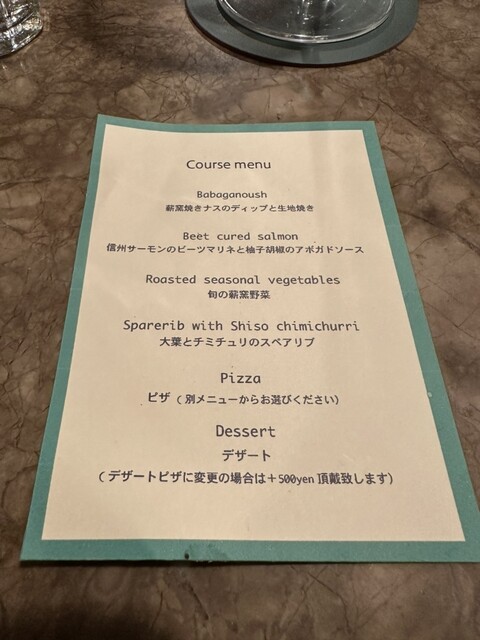 Course menu
Babaganoush
薪窯焼きナスのディップと生地焼き
Beet cured salmon
信州サーモンのビーツマリネと柚子胡椒のアボガドソース
Roasted seasonal vegetables
旬の薪窯野菜
Sparerib with Shiso chimichurri
大葉とチミチュリのスペアリブ
Pizza
ピザ（別メニューからお選びください）
Dessert
デザート
（デザートピザに変更の場合は＋500yen 頂戴致します）